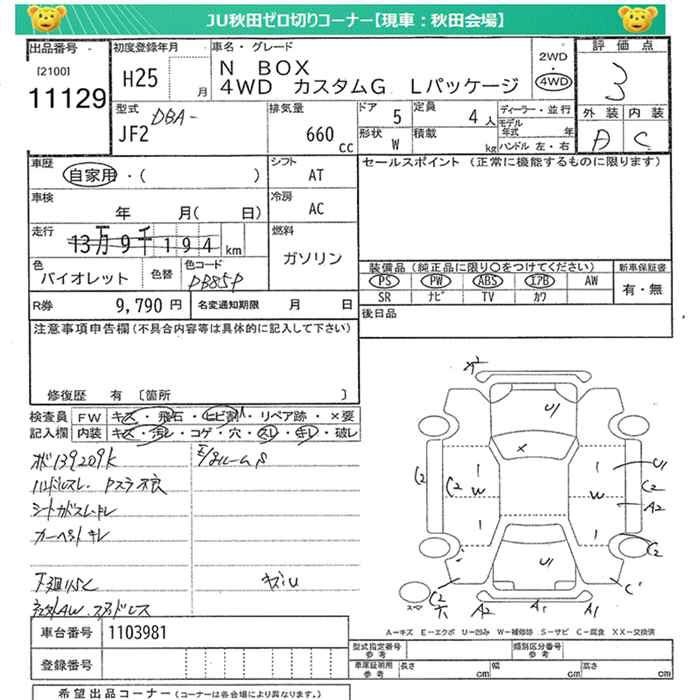 JU秋田ゼロ切りコーナー【現車：秋田会場】
出品番号 初度登録年月 車名・グレード 評価点
[2100] 11129
H25 月
N BOX
4WD カスタムG Lパッケージ
2WD
4WD
3
外装 内装
A C
型式 DBA-
JF2
排気量
660 cc
ドア 5
形状 W
定員 4人
積載 kg
ディーラー・並行
モデル年式 年
ハンドル 左・右
車歴
自家用・( )
シフト AT
セールスポイント（正常に機能するものに限ります）
車検
年 月( 日)
冷房 AC
走行
13万9千194km
燃料
ガソリン
色
バイオレット
色替
色コード
PB85P
装備品（純正品に限り○をつけてください） 新車保証書
PS PW ABS エアB AW 有・無
SR ナビ TV カワ
R券 9,790円 名変通知期限 月 日
後日品
注意事項申告欄(不具合内容等は具体的に記入して下さい)
修復歴 有〔箇所 〕
検査員 FW キズ・飛石・ヒビ割・リペア跡・×要
記入欄 内装 キズ・汚レ・コゲ・穴・スレ・キレ・破レ
ボ139209K
ハンドルスレ. Pスラ不良
シートカドスレ・キレ
カーペットキレ
下廻サビ
キズU
社外AW. スタッドレス
×2
U1
×
C2 C2 W W U1 C2 A2
U1 C2
C2 A2 A1 A1 C1
スペア
A－キズ E－エクボ U－凹み W－補修跡 S－サビ C－腐食 XX－交換済
車台番号 1103981
登録番号
型式指定番号 参考 類別区分番号 参考
車庫証明用 参考 長さ cm 幅 cm 高さ cm
希望出品コーナー（コーナーは各会場により異なります。）